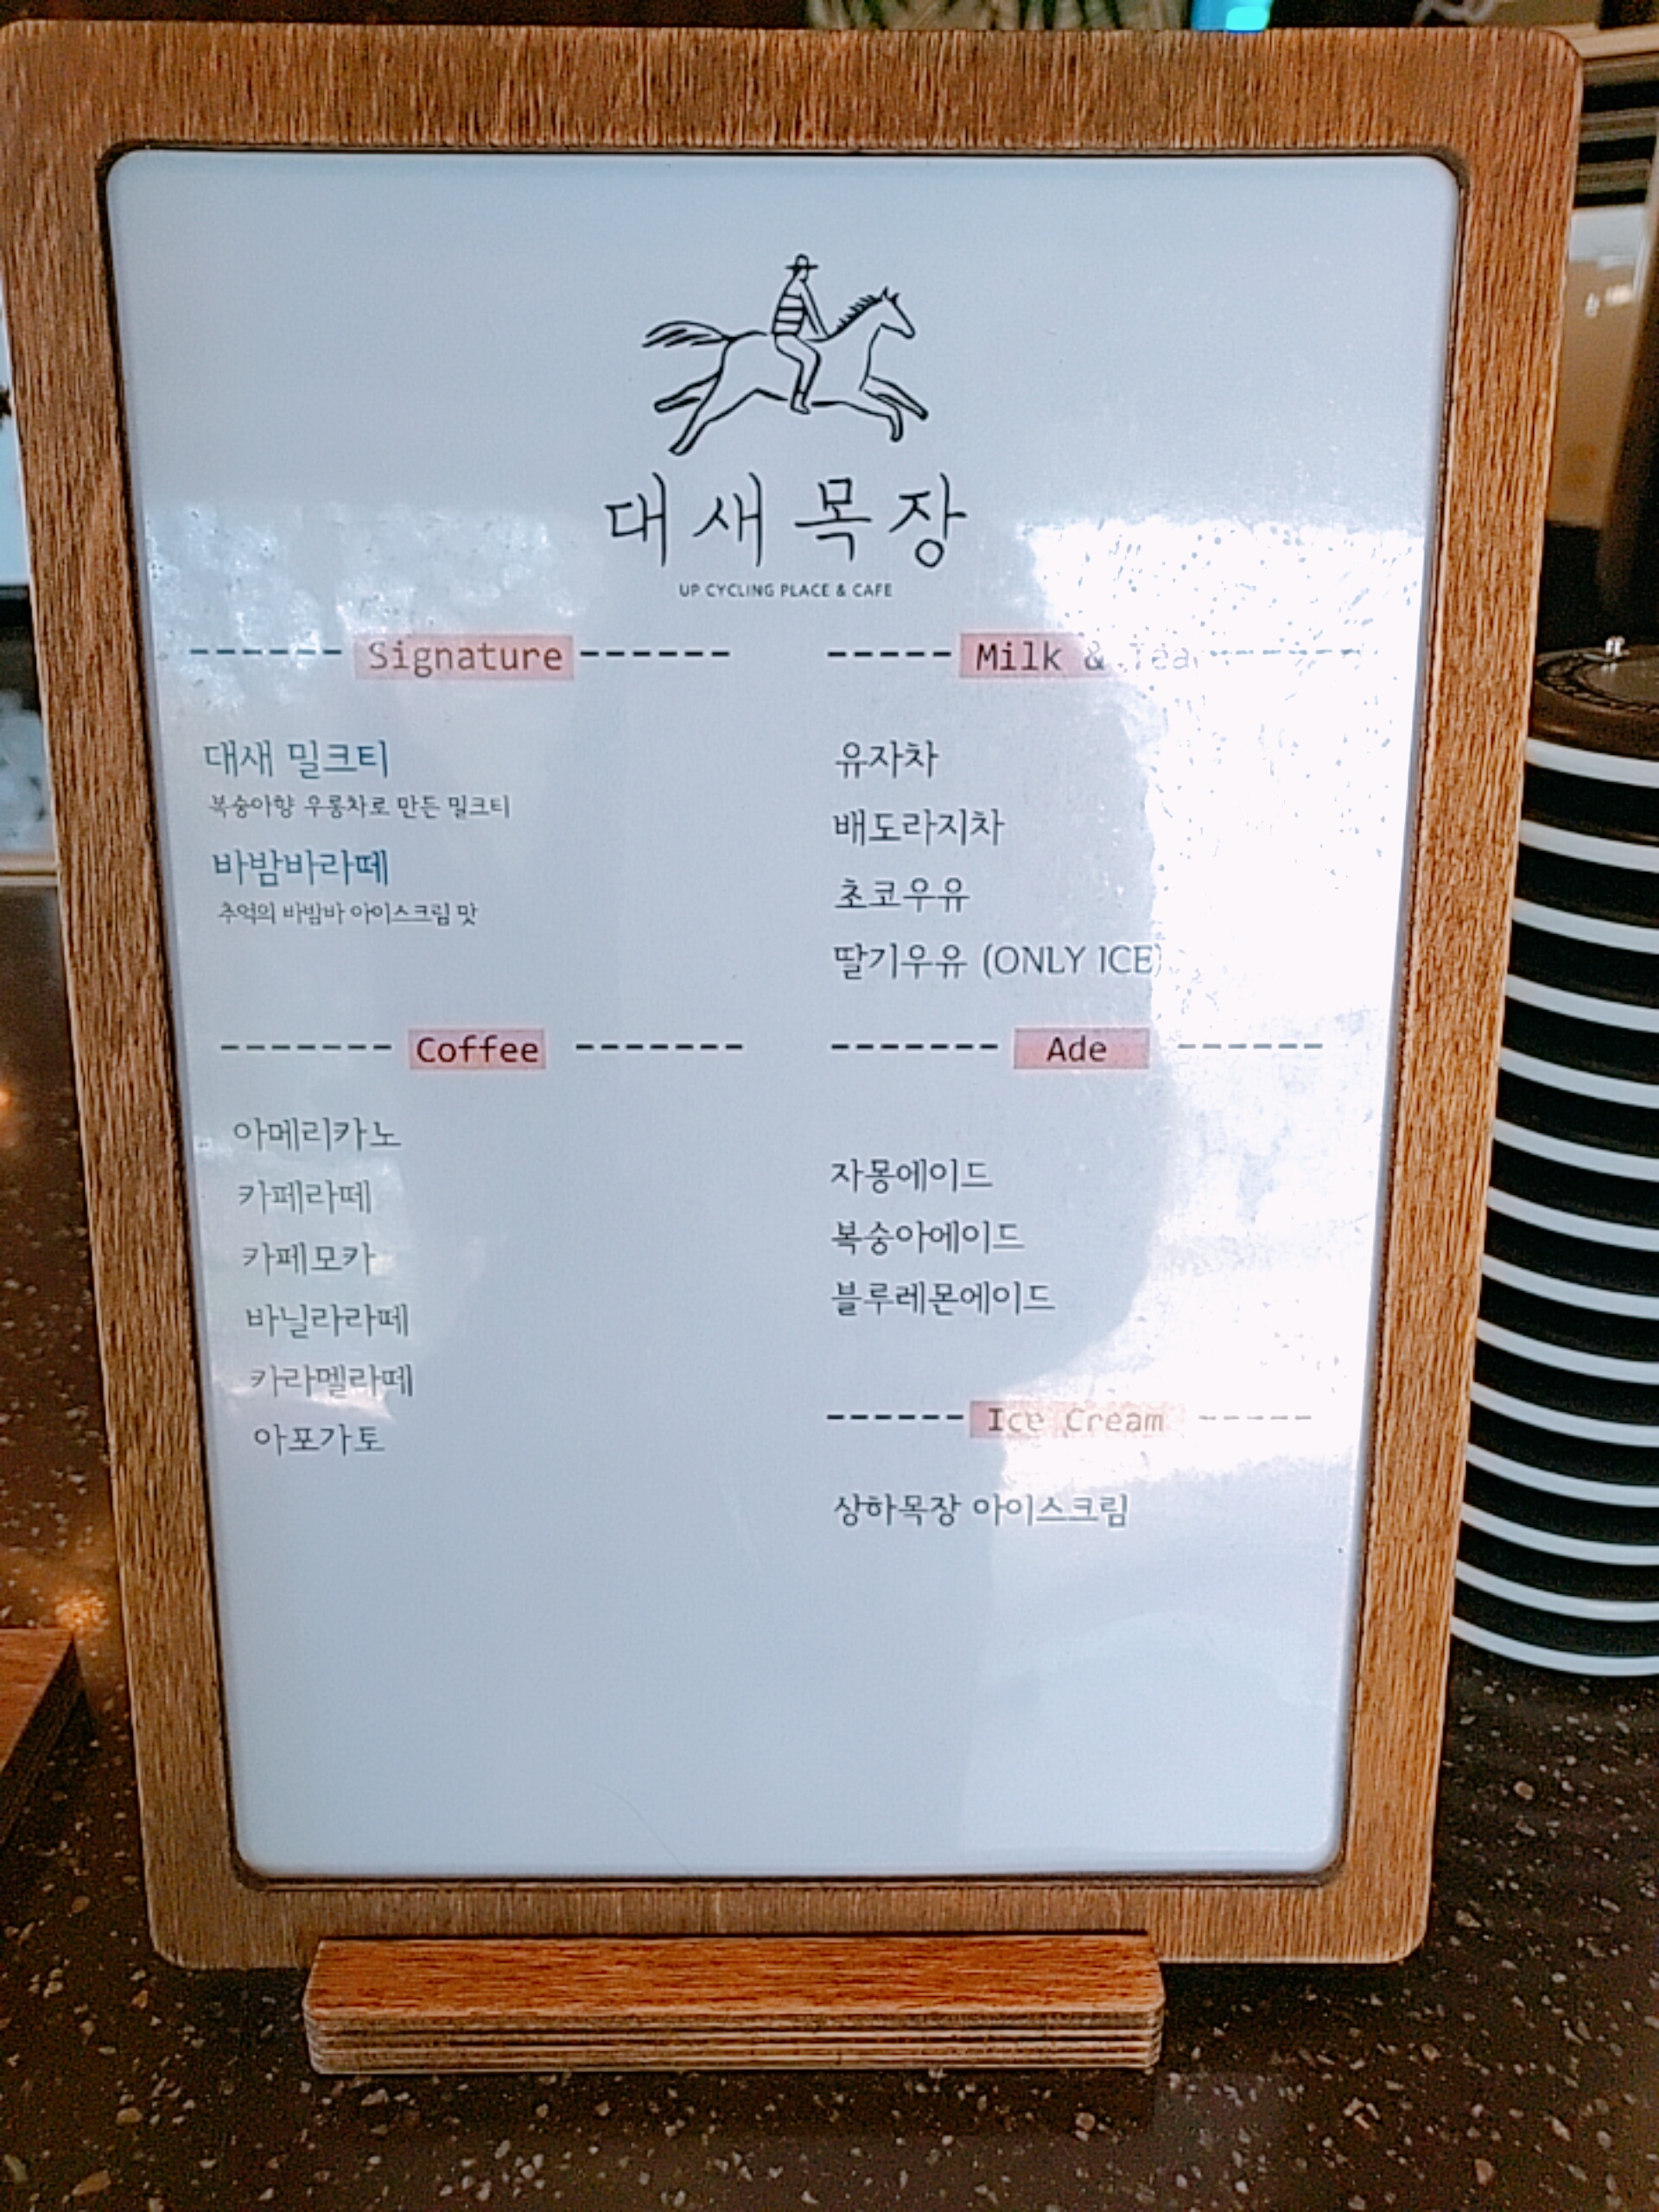 대새목장
UP CYCLING PLACE & CAFE
Signature
대새 밀크티
복숭아향 우롱차로 만든 밀크티
바밤바라떼
추억의 바밤바 아이스크림 맛
Coffee
아메리카노
카페라떼
카페모카
바닐라라떼
카라멜라떼
아포가토
Milk & Tea
유자차
배도라지차
초코우유
딸기우유 (ONLY ICE)
Ade
자몽에이드
복숭아에이드
블루레몬에이드
Ice Cream
상하목장 아이스크림